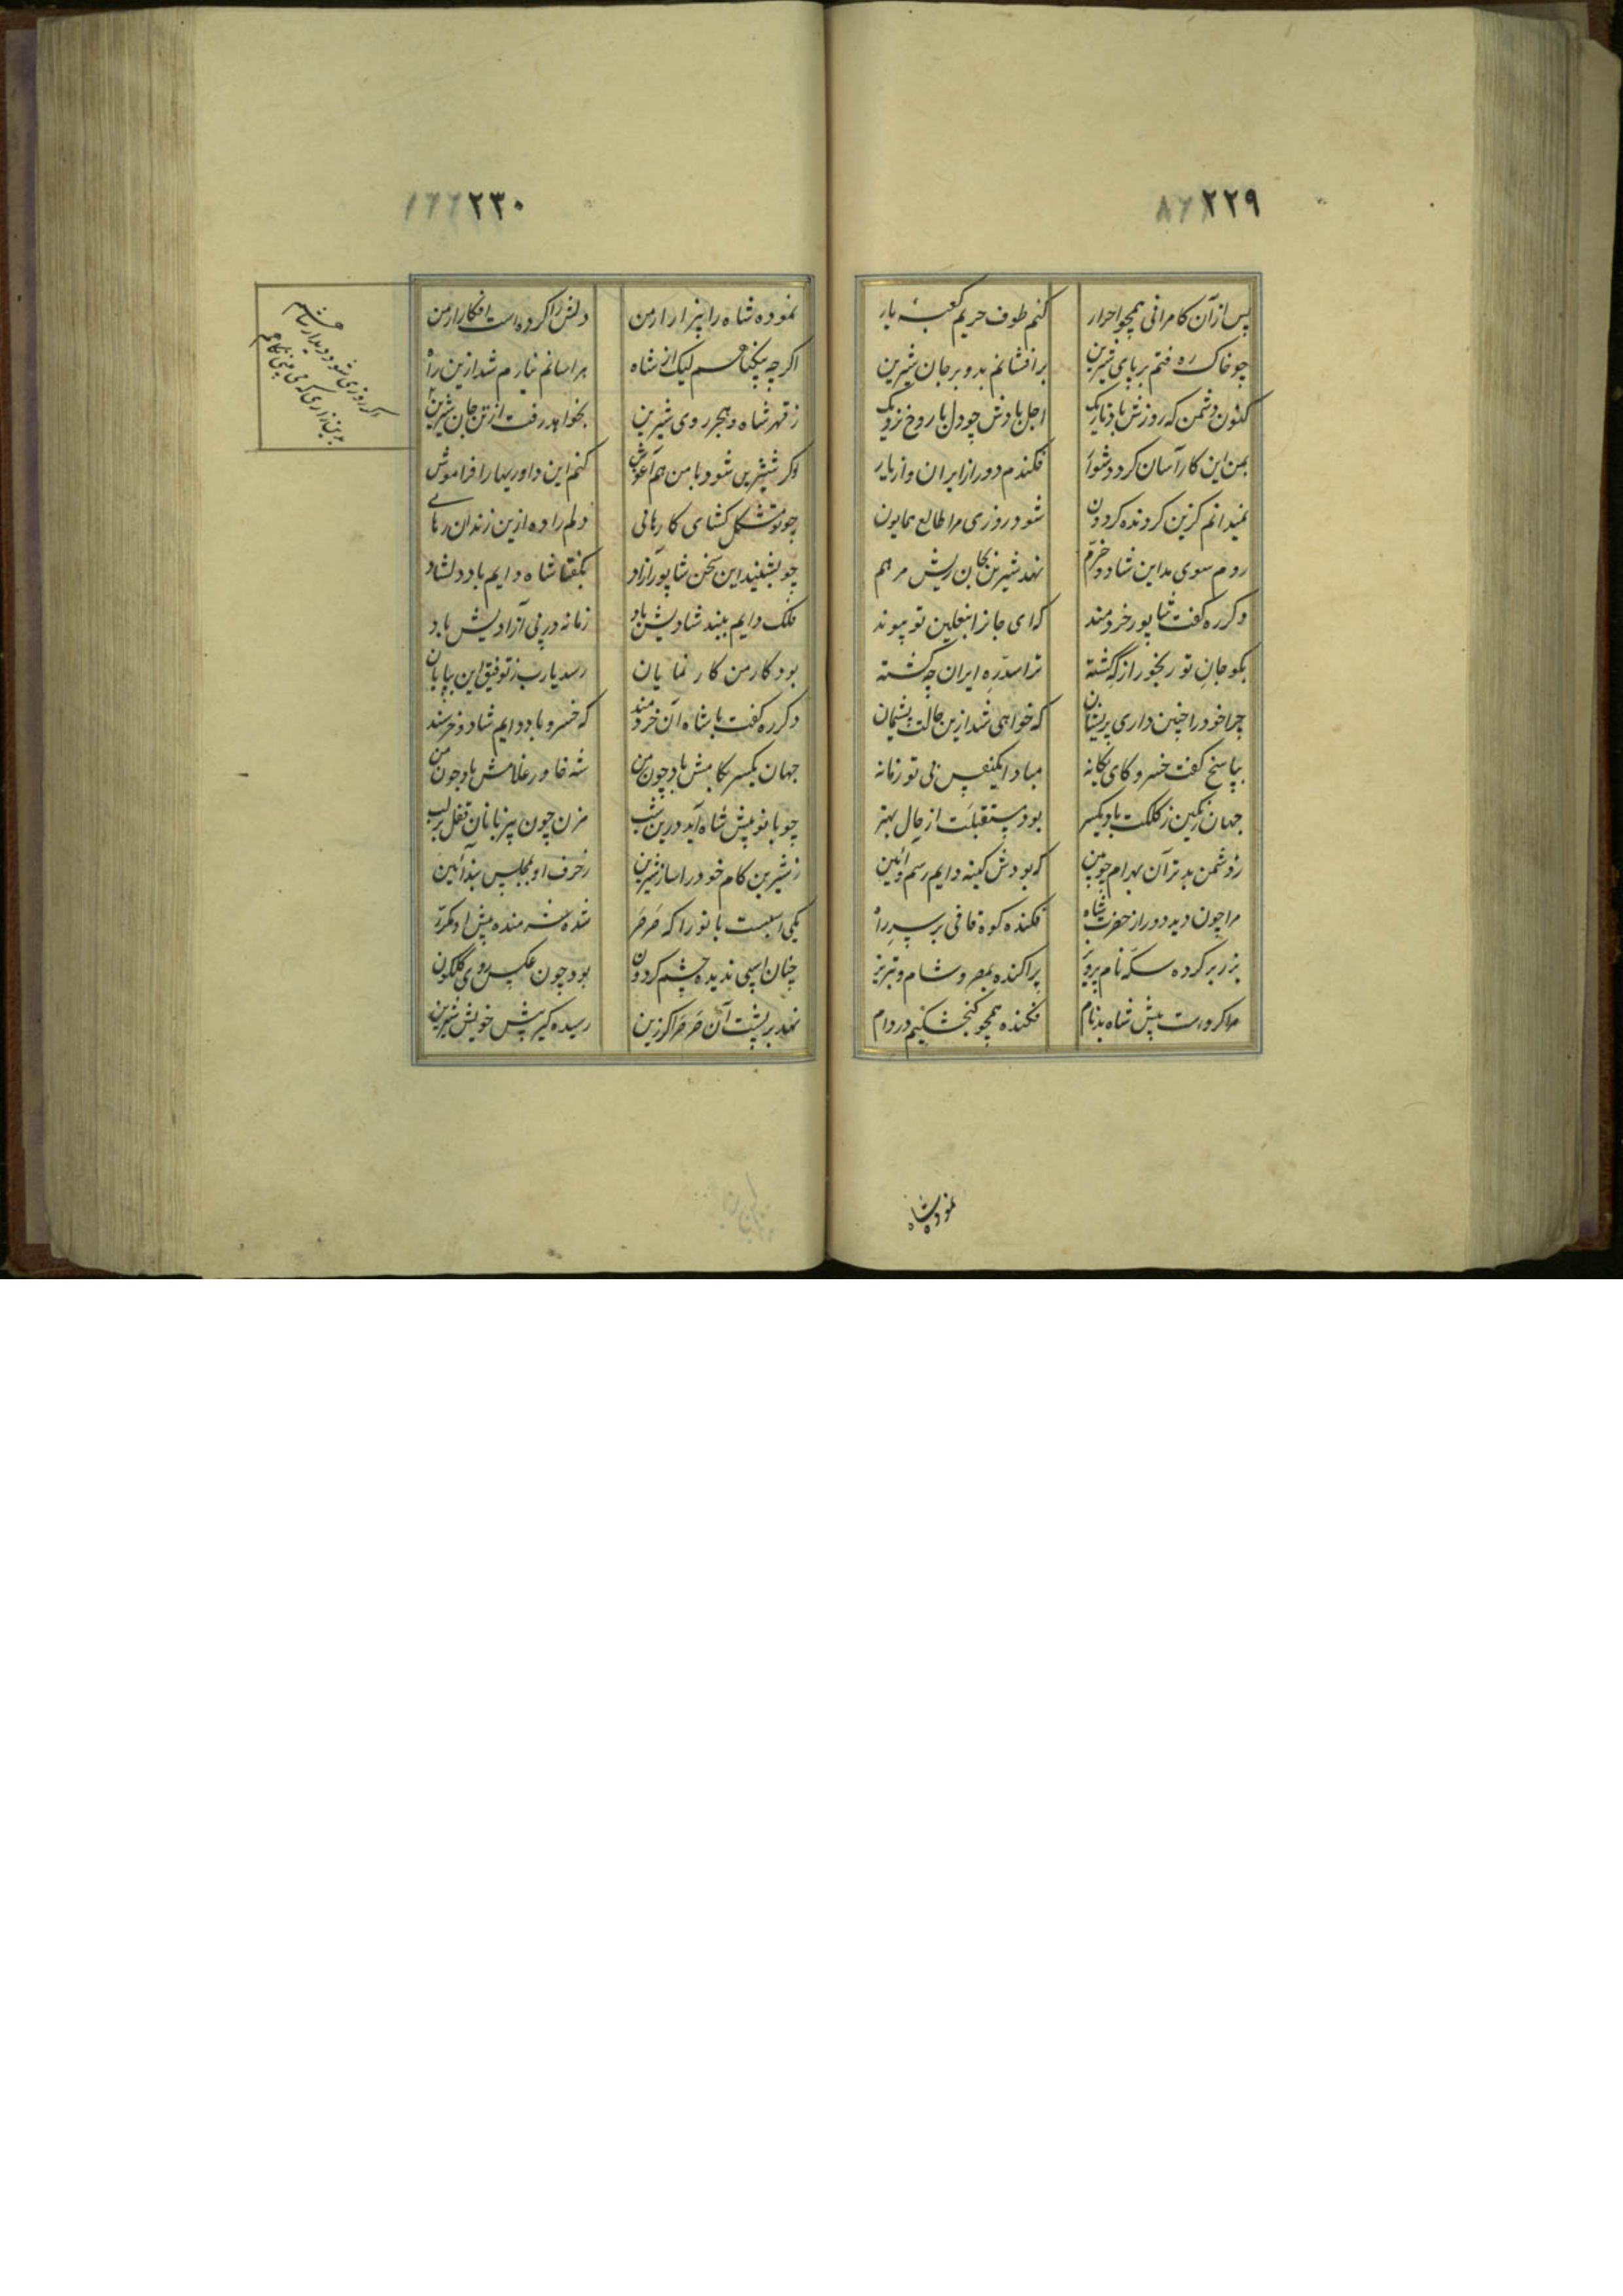 ۲۲۹
پس از آن کامرانی همچو احرار کنم طوف حریم کعبهٔ یار
چو خاک ره فتم بر پای شیرین برافشانم بدو بر جان شیرین
کنون دشمن که روزش باد تاریک اجل بادش چو دل با روح نزدیک
بمن این کار آسان کرد دشوار فکندم دور از ایران و از یار
نمیدانم کزین گردنده گردون شود روزی مرا طالع همایون
روم سوی مداین شاد و خرم نهد شیرین بجان ریش مرهم
دگر ره گفت شاپور خردمند که ای جانرا بنعلین تو پیوند
بگو جانِ تو رنجور از که گشته ترا سدّ رهِ ایران چه گشته
چرا خود را چنین داری پریشان که خواهی شد ازین حالت پشیمان
بپاسخ گفت خسرو کای یگانه مباد ایکنفس بی تو زمانه
جهان رنگین ز کلکت باد یکسر بود مستقبلت از حال بهتر
ز دشمن بدتر آن بهرام چوبین که بودش کینه دایم رسم و آئین
مرا چون دید دور از حضرت شاه فکنده کوه قافی بر سرِ راه
بزر بر کرده سکه نام پرویز پراکنده بمصر و شام و تبریز
مرا کردست پیش شاه بدنام فکنده همچو گنجشکیم در دام
نموده شاه
۲۳۰
نموده شاه را بیزار از من دلش را کرده است افکار از من
اگر چه بیگناهم لیک از شاه هراسانم نیارم شد ازین راه
ز قهر شاه و هجر روی شیرین بخواهد رفت از تن جان شیرین
اگر روزی شود دیدار شاهم
وگر شیرین شود با من هم آغوش کنم این داوریها را فراموش
چو تو مشکل گشای کارهائی دلم را ده ازین زندان رهائی
چو بشنید این سخن شاپور آزاد بگفتا شاه دایم باد دلشاد
فلک دایم ببند شادیش باد زمانه در پی آزادیش باد
بود کار من کار نمایان رسد یارب ز توفیق این بپایان
دگر ره گفت با شاه آن خردمند که خسرو باد دایم شاد و خرسند
جهان یکسر بکامش باد چون من شه خاور غلامش باد چون من
چو بانو پیش شاه آید درین شب مزن چون بیزبانان قفل بر لب
ز شیرین کام خود را ساز شیرین ز حرف او بمجلس بند آئین
یکی اسبست بانو را که صَرصَر شده شرمنده پیش او مکرر
چنان اسبی ندیده چشم گردون بود چون عکس روی گلگون
نهد بر پشت آن صَرصَر اگر زین رسیده گیر پیش خویش شیرین